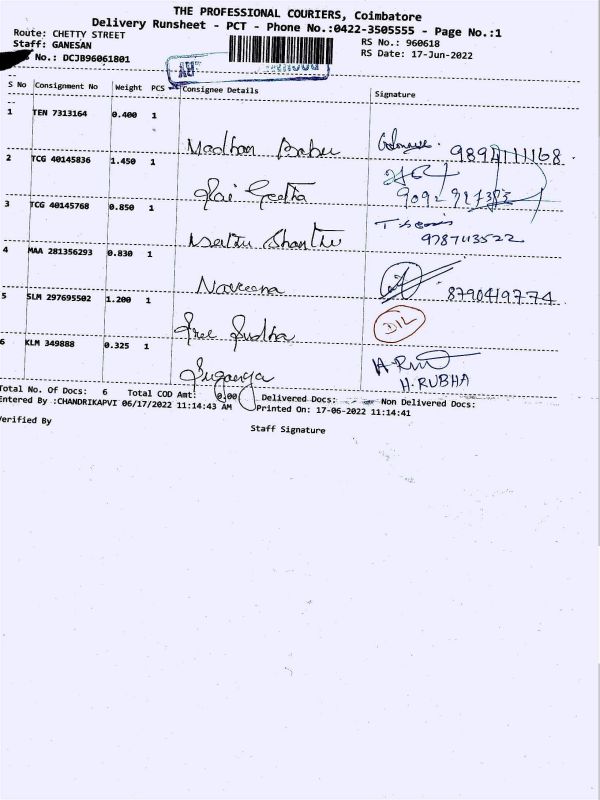 THE PROFESSIONAL COURIERS, Coimbatore
Delivery Runsheet - PCT - Phone No.:0422-3505555 - Page No.:1
Route: CHETTY STREET
RS No.: 960618
Staff: GANESAN
RS Date: 17-Jun-2022
No.: DCJB96061801
S No Consignment No Weight PCS Consignee Details Signature
1 TEN 7313164 0.400 1
Madhan Babu 9894111168
2 TCG 40145836 1.450 1
Geetha
3 TCG 40145768 0.850 1
9787113522
4 MAA 281356293 0.830 1
Naveena 8790419774
5 SLM 297695502 1.200 1
Sree Sudha D/L
6 KLM 349888 0.325 1
Suganya H.RUBHA
Total No. Of Docs: 6 Total COD Amt: 0.00 Delivered Docs: Non Delivered Docs:
Entered By :CHANDRIKAPVI 06/17/2022 11:14:43 AM Printed On: 17-06-2022 11:14:41
Verified By
Staff Signature